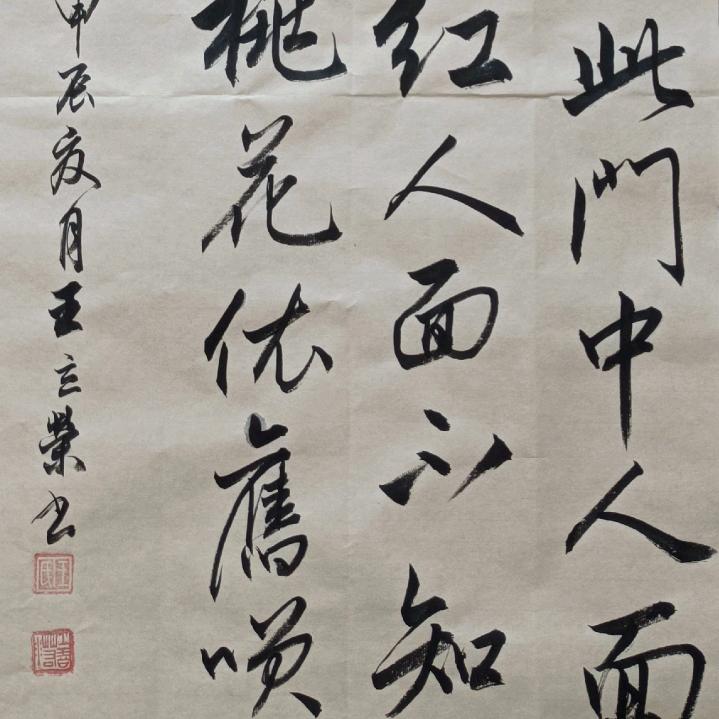 此門中人面
红人面不知
桃花依舊咲
甲辰夏月王立榮书